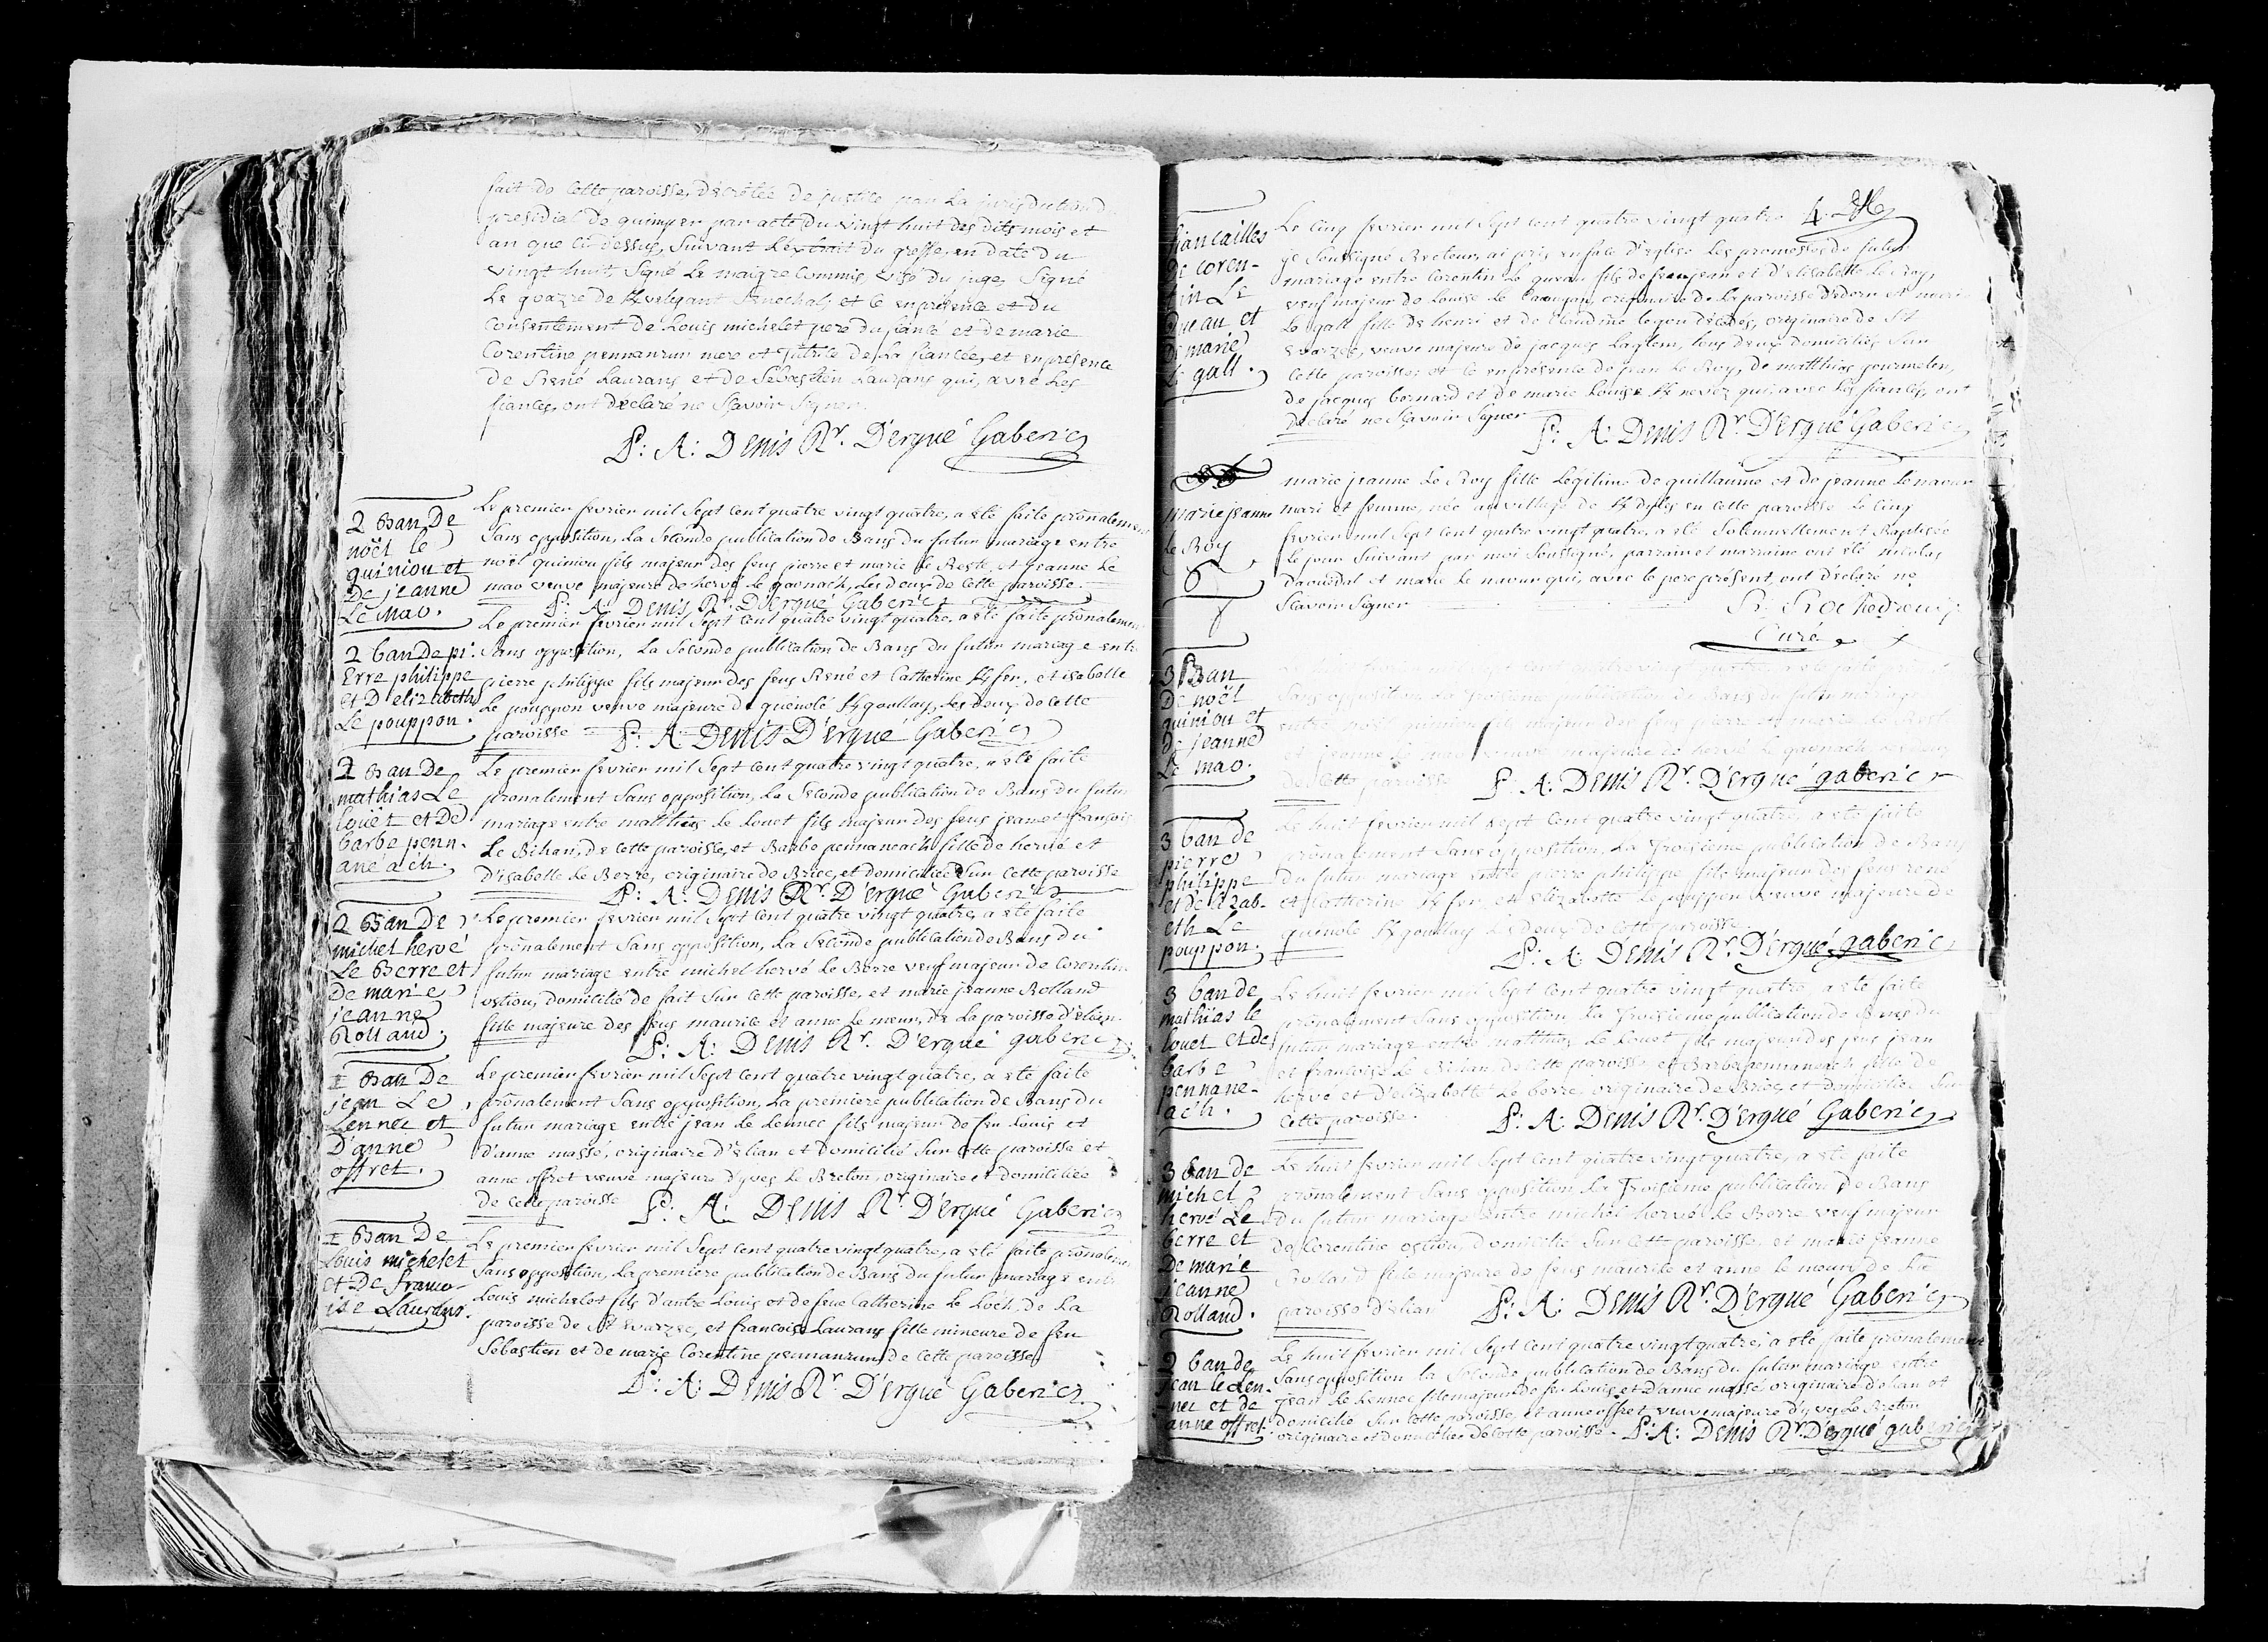 fait de cette paroisse, décrétée de justice par la jurisdiction
presidial de quimper par acte du vingt huit des dits mois et
an que ci dessus, suivant l'extrait du greffe, en date du
vingt huit signé Le maigre commis, visé du juge, signé
Le goazre de Senechal, et ce en presence et du
consentement de Louis michelet pere du fiancé et de marie
Corentine pennanrun mere et tutrice de la fiancée, et en presence
de René Laurans et de Sébastien Laurans qui, avec les
fiancés, ont declaré ne sçavoir signer.
P: A: Denis Rr. D'ergué Gaberic
2 Ban De
noël le
quiniou et
De jeanne
Le Mao.
Le premier fevrier mil sept cent quatre vingt quatre, a eté faite prônalement
sans opposition, la seconde publication de Bans du futur mariage entre
noël quiniou fils majeur des feus pierre et marie le Reste, et jeanne Le
mao veuve majeure de hervé le gaonach, les deux de cette paroisse.
P: A: Denis Rr. D'Ergué Gaberic
2 ban de pi-
Erre philippe
et D'elizabeth
Le pouppon.
Le premier fevrier mil sept cent quatre vingt quatre, a eté faite prônalement
sans opposition, la seconde publication de Bans du futur mariage entre
pierre philippe fils majeur des feus René et Catherine, et isabelle
Le pouppon veuve majeure de guénolé goullay, les deux de cette
paroisse P: A: Denis D'ergué Gaberic
2 Ban De
mathias Le
louët et De
barbe penn-
anéach.
Le premier fevrier mil sept cent quatre vingt quatre, a eté faite
prônalement sans opposition, la seconde publication de Bans du futur
mariage entre matthias le Louet fils majeur des feus jean et françoise
Le Bihan, de cette paroisse, et Barbe pennaneach fille de hervé et
D'isabelle Le Berre, originaire de Briec, et domiciliée sur cette paroisse
P: A: Denis Rr. D'Ergué Gaberic
2 Ban De
michel hervé
Le Berre et
De marie
jeanne
Rolland.
Le premier fevrier mil sept cent quatre vingt quatre, a eté faite
prônalement sans opposition, la seconde publication de Bans du
futur mariage entre michel hervé le Berre veuf majeur de Corentine
ostiou, domicilié de fait sur cette paroisse, et marie jeanne Rolland
fille majeure des feus maurice et anne le meur, de la paroisse d'élian.
P: A: Denis Rr. D'ergué gaberic
I Ban De
jean Le
Lennec et
D'anne
offret.
Le premier fevrier mil sept cent quatre vingt quatre, a eté faite
prônalement sans opposition, la premiere publication de Bans du
futur mariage entre jean le Lennec fils majeur de feu Louis et
d'anne massé, originaire d'élian et domicilié sur cette paroisse et
anne offret veuve majeure d'yves le Breton, originaire et domiciliée
de cette paroisse P: A: Denis Rr. D'Ergué Gaberic
I Ban De
Louis michelet
et De franco-
ise Laurans.
Le premier fevrier mil sept cent quatre vingt quatre, a eté faite prônalement
sans opposition, la premiere publication de Bans du futur mariage entre
Louis michelet fils d'autre Louis et de feue Catherine le Loch, de la
paroisse de St Evarzec, et francoise Laurans fille mineure de feu
Sébastien et de marie Corentine pennanrun, de cette paroisse
P: A: Denis Rr. D'Ergué Gaberic
4.
fiancailles
De coren-
tin Le
queau et
De marie
Le gall.
Le cinq fevrier mil sept cent quatre vingt quatre
je soussigné Recteur, ai pris en face d'Eglise les promesses de futur
mariage entre Corentin Le queau fils de feu jean et d'Elisabette Le Roy,
veuf majeur de Louise le, originaire de la paroisse d'Edern et marie
Le gall fille de henri et de Claudine decédés, originaire de St
Evarzec, veuve majeure de jacques, tous deux domiciliés sur
cette paroisse, et ce en présence de jean Le Roy, de matthias gourmelen,
de jacques bernard et de marie Louise nevez qui, avec les fiancés, ont
declaré ne sçavoir signer P: A: Denis Rr. D'Ergué Gaberic
marie jeanne
Le Roy
6
marie jeanne Le Roy fille Légitime de guillaume et de jeanne Le naour
mari et femme, née au village de en cette paroisse le cinq
fevrier mil sept cent quatre vingt quatre, a eté solemnellement Baptisée
le jour suivant par moi soussigné, parrain et marraine ont été nicolas
daoudal et marie Le naour qui, avec le pere présent, ont declaré ne
sçavoir signer
Curé
3 Ban
De noël
quiniou et
De jeanne
Le mao.
sans opposition, la troisieme publication de Bans du futur mariage
entre noël quiniou majeur des feus pierre et marie
et jeanne le veuve majeure de hervé le gaonach
de cette paroisse P: A: Denis Rr. D'Ergué gaberic
3 ban de
pierre
philippe
et De elizab-
eth Le
pouppon.
Le huit fevrier mil sept cent quatre vingt quatre, a eté faite
prônalement sans opposition, la troisieme publication de Bans
du futur mariage entre pierre philippe fils majeur des feus rené
et Catherine, et elizabette le pouppon veuve majeure de
guénolé goullay les deux de cette paroisse.
P: A: Denis Rr. D'ergué gaberic
3 ban de
mathias le
louet et de
barbe
pennane-
ach.
Le huit fevrier mil sept cent quatre vingt quatre, a eté faite
prônalement sans opposition la troisieme publication de Bans du
futur mariage entre matthias Le Louet fils majeur des feus jean
et francoise Le Bihan, de cette paroisse et Barbe pennaneach fille de
hervé et d'elizabette Le berre, originaire de Briec, et domiciliée sur
cette paroisse. P: A: Denis Rr. D'ergué Gaberic
3 ban de
michel
hervé Le
berre et
De marie
jeanne
Rolland.
Le huit fevrier mil sept cent quatre vingt quatre, a eté faite
prônalement sans opposition, la troisieme publication de Bans
du futur mariage entre michel hervé le Berre veuf majeur
de Corentine ostiou, domicilié sur cette paroisse, et marie jeanne
Rolland fille majeure de feus maurice et anne le meur, de la
paroisse d'élian P: A: Denis Rr. D'ergué Gaberic
2 ban de
jean le Len-
nec et de
anne offret.
Le huit fevrier mil sept cent quatre vingt quatre, a eté faite prônalement
sans opposition la seconde publication de Bans du futur mariage entre
jean le Lennec fils majeur de feu Louis et d'anne massé originaire d'élian et
domicilié sur cette paroisse, et anne offret veuve majeure d'yves Le Breton
originaire et domiciliée de cette paroisse. P: A: Denis Rr. D'ergué gaberic